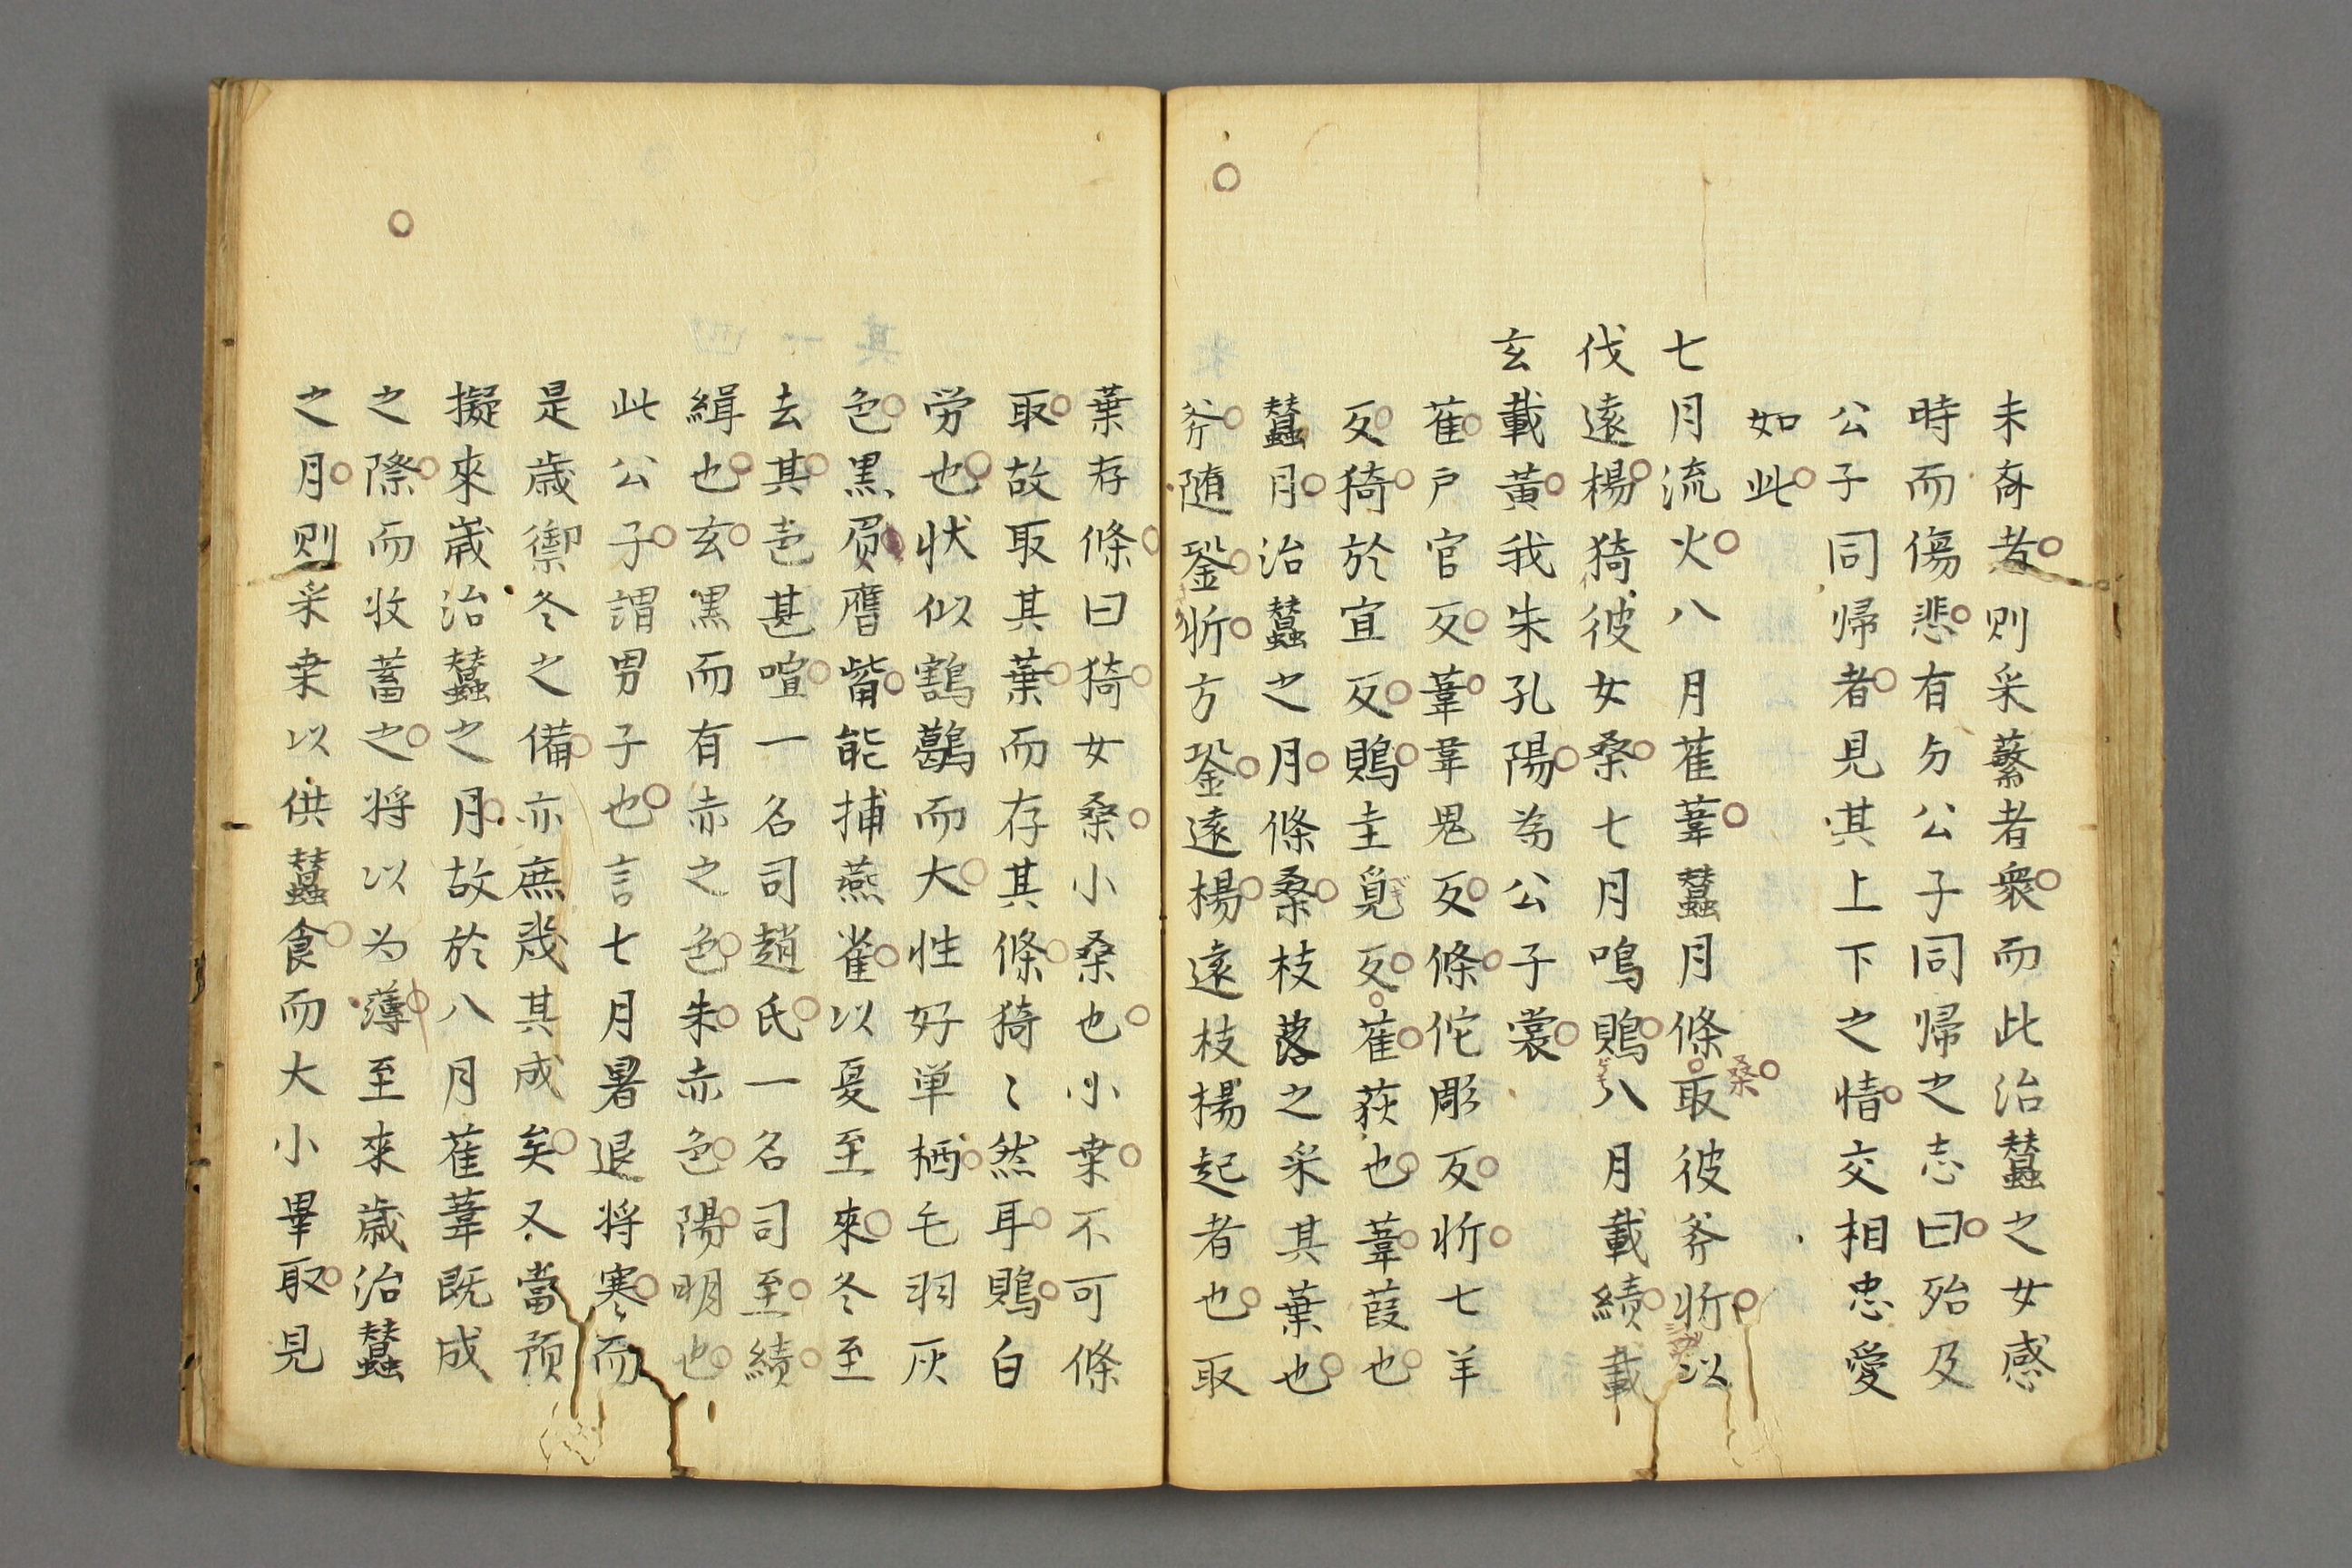 未斎者則采蘩者衆而此治蠶之女感
時而傷悲有与公子同帰之志曰殆及
公子同帰者見其上下之情交相忠愛
如此
七月流火八月萑葦蠶月條桑取彼斧斨以
伐遠楊猗彼女桑七月鳴鵙八月載績載
玄載黃我朱孔陽為公子裳
萑戶官反葦韋鬼反條佗彫反斨七羊
反猗於宜反鵙圭覓反萑荻也葦葭也
蠶月治蠶之月條桑枝落之采其葉也
斧随銎斨方銎遠楊遠枝揚起者也取
葉存條曰猗女桑小桑也小桒不可條
取故取其葉而存其條猗〻然耳鵙白
労也状似鶷鶡而大性好単栖毛羽灰
色黒眉觜能捕燕雀以夏至來冬至
去其声甚喧一名司趙氏一名司至績
緝也玄黒而有赤之色朱赤色陽明也
此公子謂男子也言七月暑退将寒而
是歳禦冬之備亦庶幾其成矣又當預
擬來歲治蠶之月故於八月萑葦既成
之際而收蓄之将以为薄至來歳治蠶
之月則采桒以供蠶食而大小畢取見